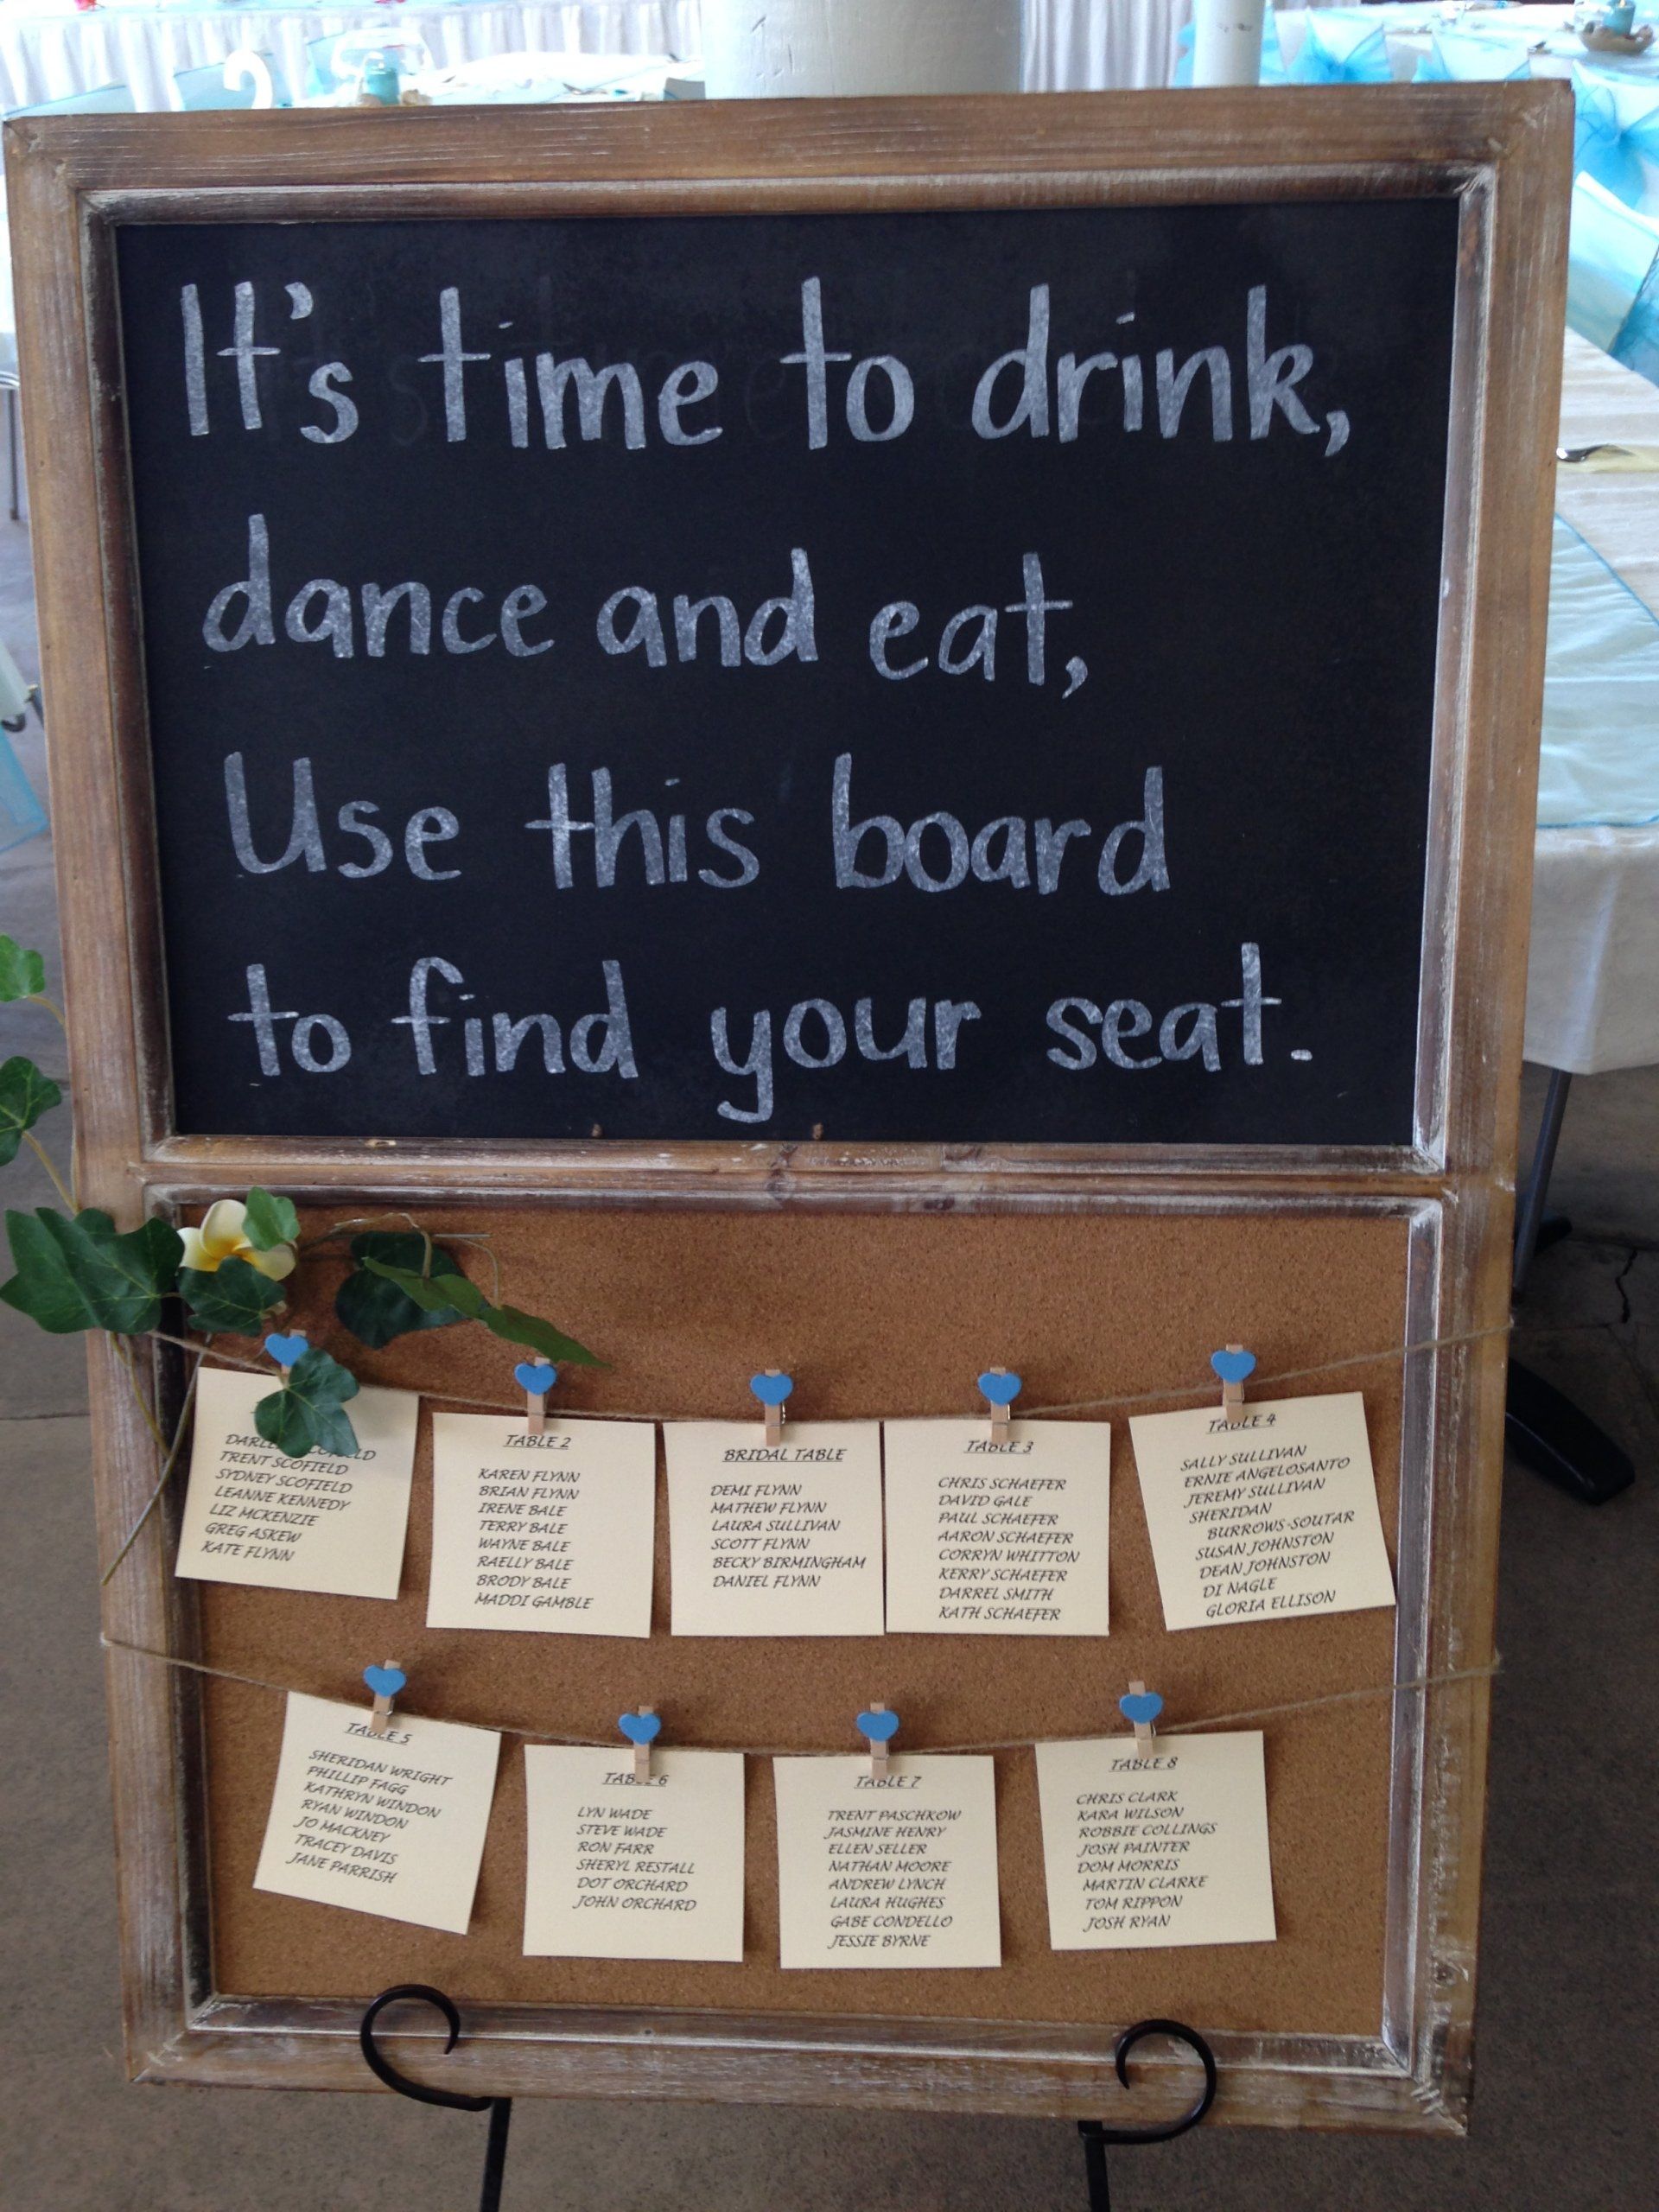 It's time to drink,
dance and eat,
Use this board
to find your seat.
TRENT SCOFIELD
SYDNEY SCOFIELD
LEANNE KENNEDY
LIZ MCKENZIE
GREG ASKEW
KATE FLYNN
TABLE 2
KAREN FLYNN
BRIAN FLYNN
IRENE BALE
TERRY BALE
WAYNE BALE
RAELLY BALE
BRODY BALE
MADDI GAMBLE
BRIDAL TABLE
DEMI FLYNN
MATHEW FLYNN
LAURA SULLIVAN
SCOTT FLYNN
BECKY BIRMINGHAM
DANIEL FLYNN
TABLE 3
CHRIS SCHAEFER
DAVID GALE
PAUL SCHAEFER
AARON SCHAEFER
CORRYN WHITTON
KERRY SCHAEFER
DARREL SMITH
KATH SCHAEFER
TABLE 4
SALLY SULLIVAN
ERNIE ANGELOSANTO
JEREMY SULLIVAN
SHERIDAN
BURROWS-SOUTAR
SUSAN JOHNSTON
DEAN JOHNSTON
DI NAGLE
GLORIA ELLISON
TABLE 5
SHERIDAN WRIGHT
PHILLIP FAGG
KATHRYN WINDON
RYAN WINDON
JO MACKNEY
TRACEY DAVIS
JANE PARRISH
TABLE 6
LYN WADE
STEVE WADE
RON FARR
SHERYL RESTALL
DOT ORCHARD
JOHN ORCHARD
TABLE 7
TRENT PASCHKOW
JASMINE HENRY
ELLEN SELLER
NATHAN MOORE
ANDREW LYNCH
LAURA HUGHES
GABE CONDELLO
JESSIE BYRNE
TABLE 8
CHRIS CLARK
KARA WILSON
ROBBIE COLLINGS
JOSH PAINTER
DOM MORRIS
MARTIN CLARKE
TOM RIPPON
JOSH RYAN